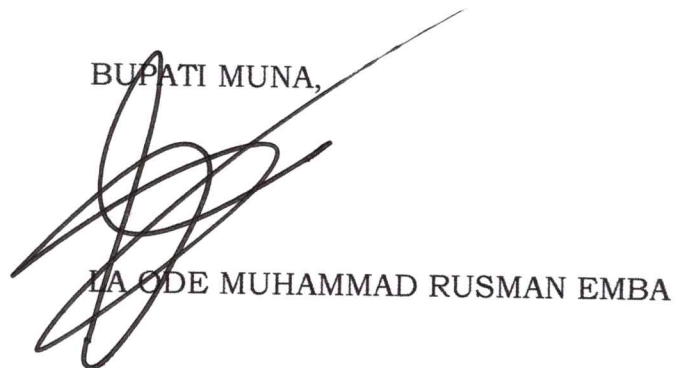 BUPATI MUNA,
LA ODE MUHAMMAD RUSMAN EMBA